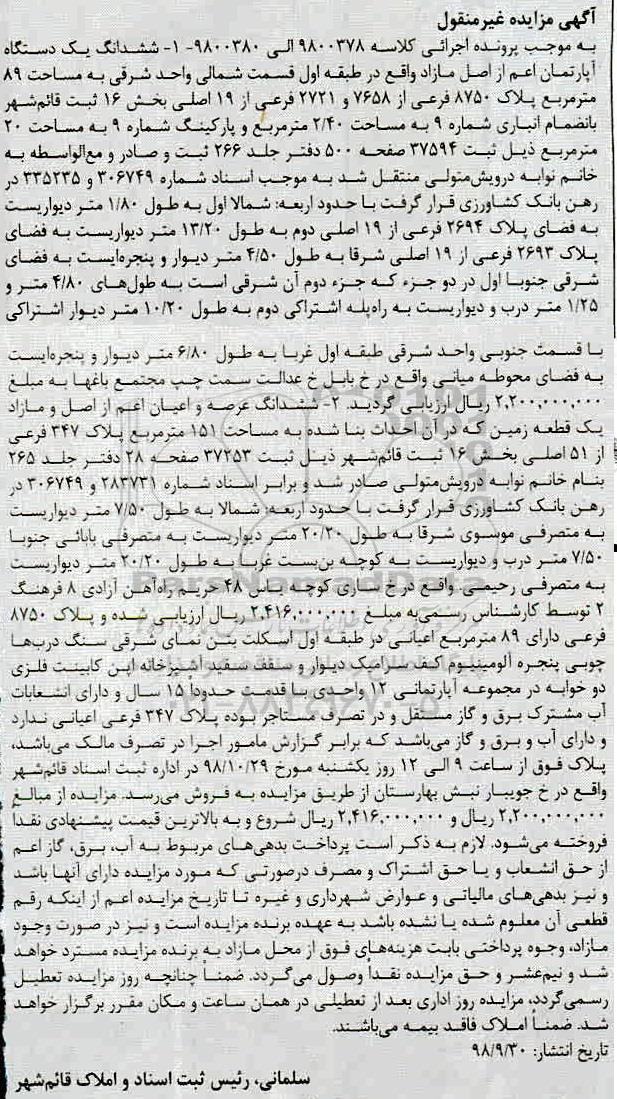 آگهی مزایده غیرمنقول
به موجب پرونده اجرائی کلاسه ۹۸۰۰۳۷۸ الی ۹۸۰۰۳۸۰- ۱- ششدانگ یک دستگاه
آپارتمان اعم از اصل مازاد واقع در طبقه اول قسمت شمالی واحد شرقی به مساحت ۸۹
مترمربع پلاک ۸۷۵۰ فرعی از ۷۶۵۸ و ۲۷۲۱ فرعی از ۱۹ اصلی بخش ۱۶ ثبت قائم‌شهر
بانضمام انباری شماره ۹ به مساحت ۲/۴۰ مترمربع و پارکینگ شماره ۹ به مساحت ۲۰
مترمربع ذیل ثبت ۳۷۵۹۴ صفحه ۵۰۰ دفتر جلد ۲۶۶ ثبت و صادر و مع‌الواسطه به
خانم نوابه درویش‌متولی منتقل شد به موجب اسناد شماره ۳۰۶۷۴۹ و ۳۳۵۲۳۵ در
رهن بانک کشاورزی قرار گرفت با حدود اربعه: شمالا اول به طول ۱/۸۰ متر دیواریست
به فضای پلاک ۲۶۹۴ فرعی از ۱۹ اصلی دوم به طول ۱۳/۲۰ متر دیواریست به فضای
پلاک ۲۶۹۳ فرعی از ۱۹ اصلی شرقا به طول ۴/۵۰ متر دیوار و پنجره‌ایست به فضای
شرقی جنوبا اول در دو جزء که جزء دوم آن شرقی است به طول‌های ۴/۸۰ متر و
۱/۲۵ متر درب و دیواریست به راه‌پله اشتراکی دوم به طول ۱۰/۲۰ متر دیوار اشتراکی
با قسمت جنوبی واحد شرقی طبقه اول غربا به طول ۶/۸۰ متر دیوار و پنجره‌ایست
به فضای محوطه میانی واقع در خ بابل خ عدالت سمت چپ مجتمع باغها به مبلغ
۲,۲۰۰,۰۰۰,۰۰۰ ریال ارزیابی گردید. ۲- ششدانگ عرصه و اعیان اعم از اصل و مازاد
یک قطعه زمین که در آن احداث بنا شده به مساحت ۱۵۱ مترمربع پلاک ۳۴۷ فرعی
از ۵۱ اصلی بخش ۱۶ ثبت قائم‌شهر ذیل ثبت ۳۷۲۵۳ صفحه ۲۸ دفتر جلد ۲۶۵
بنام خانم نوابه درویش‌متولی صادر شد و برابر اسناد شماره ۲۸۳۷۳۱ و ۳۰۶۷۴۹ در
رهن بانک کشاورزی قرار گرفت با حدود اربعه: شمالا به طول ۷/۵۰ متر دیواریست
به متصرفی موسوی شرقا به طول ۲۰/۲۰ متر دیواریست به متصرفی بابائی جنوبا
۷/۵۰ متر درب و دیواریست به کوچه بن‌بست غربا به طول ۲۰/۲۰ متر دیواریست
به متصرفی رحیمی واقع در خ ساری کوچه یاس ۴۸ حریم راه‌آهن آزادی ۸ فرهنگ
۲ توسط کارشناس رسمی به مبلغ ۲,۴۱۶,۰۰۰,۰۰۰ ریال ارزیابی شده و پلاک ۸۷۵۰
فرعی دارای ۸۹ مترمربع اعیانی در طبقه اول اسکلت بتن نمای شرقی سنگ درب‌ها
چوبی پنجره آلومینیوم کف سرامیک دیوار و سقف سفید آشپزخانه اپن کابینت فلزی
دو خوابه در مجموعه آپارتمانی ۱۲ واحدی با قدمت حدوداً ۱۵ سال و دارای انشعابات
آب مشترک برق و گاز مستقل و در تصرف مستاجر بوده پلاک ۳۴۷ فرعی اعیانی ندارد
و دارای آب و برق و گاز می‌باشد که برابر گزارش مامور اجرا در تصرف مالک می‌باشد،
پلاک فوق از ساعت ۹ الی ۱۲ روز یکشنبه مورخ ۹۸/۱۰/۲۹ در اداره ثبت اسناد قائم‌شهر
واقع در خ جویبار نبش بهارستان از طریق مزایده به فروش می‌رسد. مزایده از مبالغ
۲,۲۰۰,۰۰۰,۰۰۰ ریال و ۲,۴۱۶,۰۰۰,۰۰۰ ریال شروع و به بالاترین قیمت پیشنهادی نقدا
فروخته می‌شود. لازم به ذکر است پرداخت بدهی‌های مربوط به آب، برق، گاز اعم
از حق انشعاب و یا حق اشتراک و مصرف درصورتی که مورد مزایده دارای آنها باشد
و نیز بدهی‌های مالیاتی و عوارض شهرداری و غیره تا تاریخ مزایده اعم از اینکه رقم
قطعی آن معلوم شده یا نشده باشد به عهده برنده مزایده است و نیز در صورت وجود
مازاد، وجوه پرداختی بابت هزینه‌های فوق از محل مازاد به برنده مزایده مسترد خواهد
شد و نیم‌عشر و حق مزایده نقداً وصول می‌گردد. ضمناً چنانچه روز مزایده تعطیل
رسمی گردد، مزایده روز اداری بعد از تعطیلی در همان ساعت و مکان مقرر برگزار خواهد
شد. ضمناً املاک فاقد بیمه می‌باشند.
تاریخ انتشار: ۹۸/۹/۳۰
سلمانی، رئیس ثبت اسناد و املاک قائم‌شهر
ParsNamadData
۰۲۱-۸۸۳۴۹۶۷۰-۵